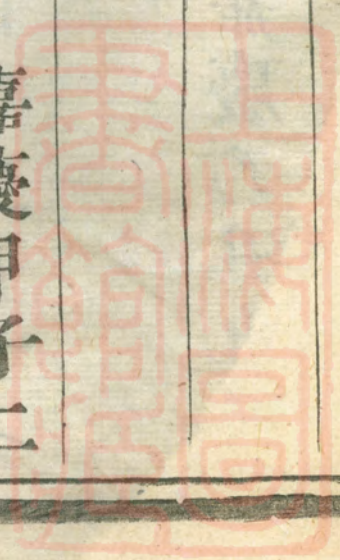 上海圖
書館藏
嘉慶甲子二